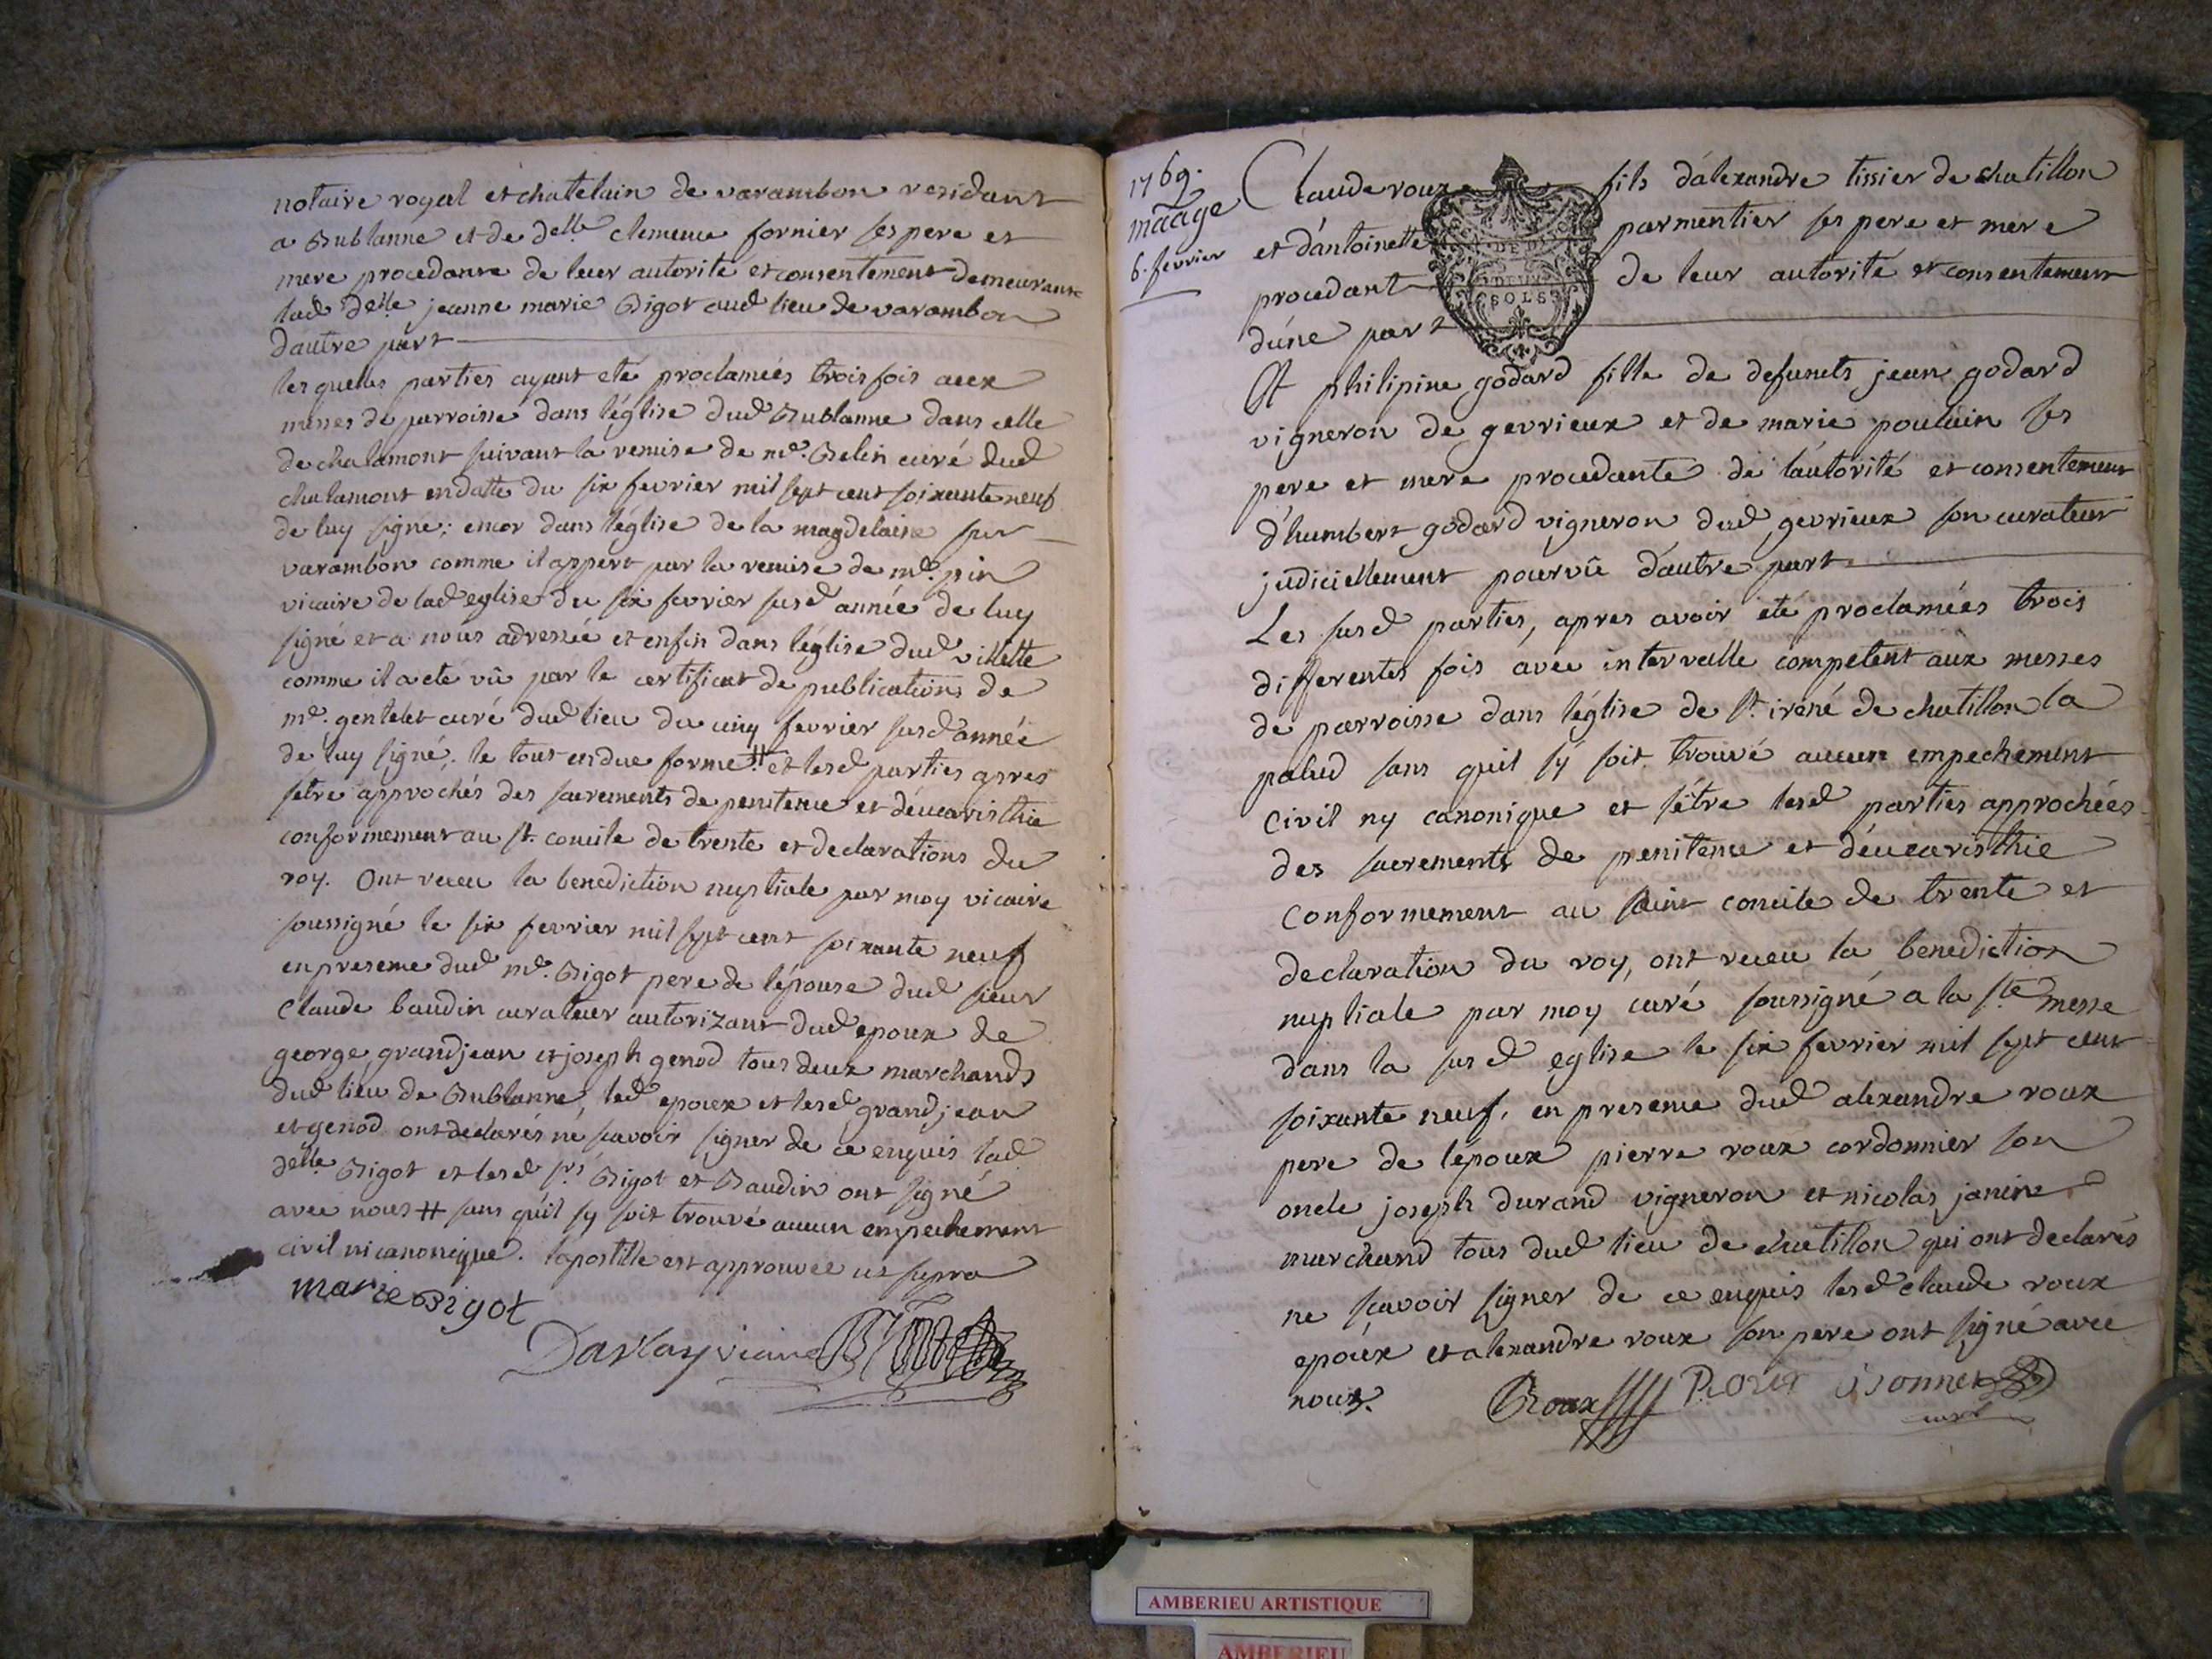 notaire royal et chatelain de varambon residant
a Bublanne et de delle clemence fornier ses pere et
mere procedante de leur autorité et consentement demeurant
lad delle jeanne marie Bigot aud lieu de varambon
dautre part
lesquelles parties ayant eté proclameés trois fois aux
messes de parroisse dans l'église dud Bublanne dans celle
de chalamont suivant la remise de me. Belin curé dud
chalamont en datte du six fevrier mil sept cent soixante neuf
de luy signé; encor dans léglise de la magdelaine sur
varambon comme il appert par la remise de me. pin
vicaire de lad eglise du six fevrier susd année de luy
signé et a nous adressée et enfin dans léglise dud villette
comme il a eté vû par le certificat de publications de
me. gentelet curé dud lieu du cinq fevrier susd année
de luy signé. le tout en due forme # et lesd parties apres
sêtre approchés des sacrements de penitence et déucaristhie
conformement au st. concile de trente et declarations du
roy. Ont receu la benediction nuptiale par moy vicaire
soussigné le six fevrier mil sept cent soixante neuf
en presence dud me. Bigot pere de lépouse dud sieur
Claude baudin curateur autorizant dud epoux de
george grandjean et joseph genod tous deux marchands
dud lieu de Bublanne, led epoux et lesd grandjean
et genod ont declarés ne scavoir signer de ce enquis lad
delle Bigot et lesd srs Bigot et Baudin ont signé
avec nous # sans quil sy soit trouvé aucun empechement
civil ni canonique. lapostille est approuvée ut supra
marie Bigot
vicaire
1769.
maage
6. fevrier
Claude roux fils dálexandre tissier de chatillon
et dántoinette parmentier ses pere et mere
procedant de leur autorité et consentement
dúne part
DEUX
SOLS
Et philipine godard fille de defuncts jean godard
vigneron de gevrieux et de marie poulain ses
pere et mere procedante de láutorité et consentement
d'humbert godard vigneron dud gevrieux son curateur
judiciellement pourvû dáutre part
Les susd parties, apres avoir eté proclamées trois
differentes fois avec intervalle competent aux messes
de parroisse dans léglise de st. irené de chatillon la
palud sans quil sy soit trouvé aucun empechement
civil ny canonique et sêtre lesd parties approchées
des sacrements de penitence et déucaristhie
conformement au saint concile de trente et
declaration du roy, ont receu la benediction
nuptiale par moy curé soussigné a la ste messe
dans la susd eglise le six fevrier mil sept cent
soixante neuf, en presence dud alexandre roux
pere de lépoux pierre roux cordonnier son
oncle joseph durand vigneron et nicolas janin
marchand tous dud lieu de chatillon qui ont declarés
ne scavoir signer de ce enquis lesd claude roux
epoux et alexandre roux son pere ont signé avec
nous.
Croux Roux
curé
AMBERIEU ARTISTIQUE
AMBERIEU